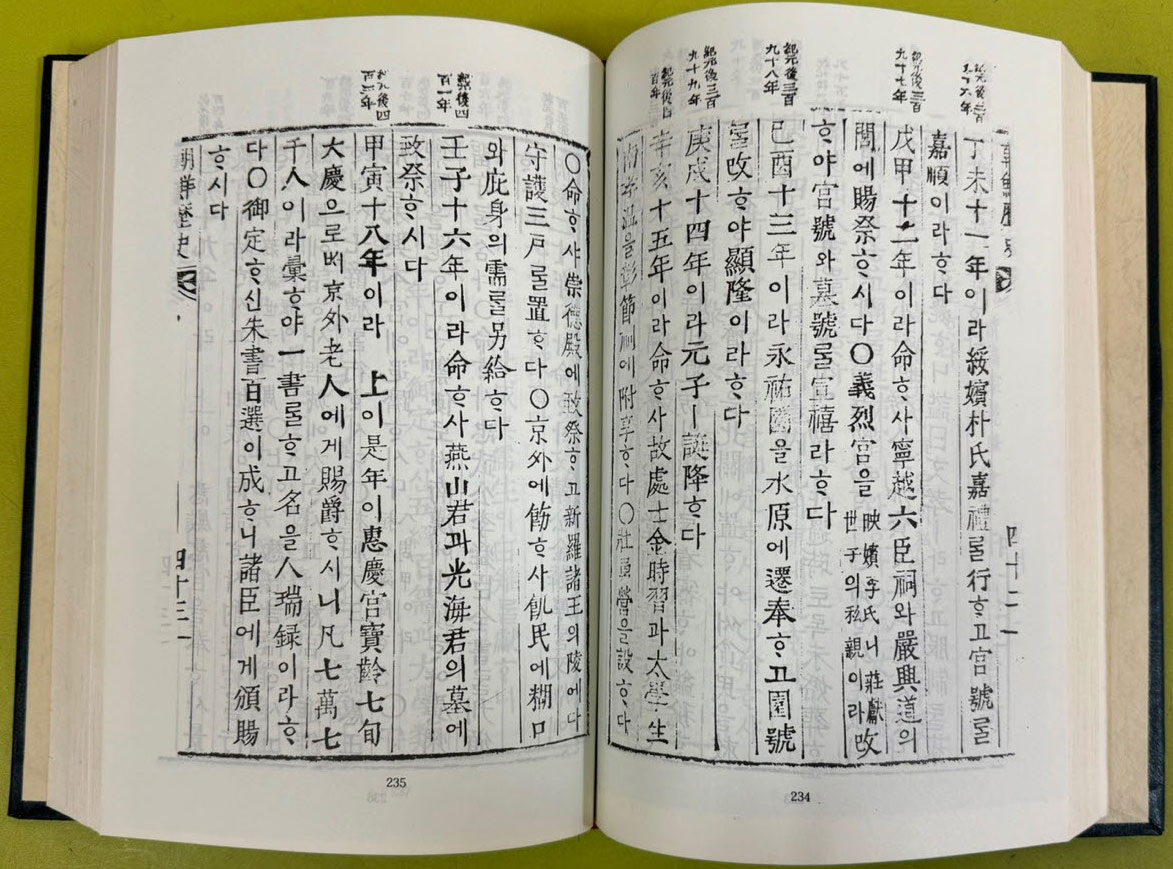 朝鮮歷史 四十二
紀元後三百
九十六年
丁未十一年이라綏嬪朴氏嘉禮ᄅᆞᆯ行ᄒᆞ고宮號ᄅᆞᆯ
嘉順이라ᄒᆞ다
紀元後三百
九十七年
戊甲十二年이라命ᄒᆞ사寧越六臣祠와嚴興道의
閭에賜祭ᄒᆞ시다〇義烈宮을
暎嬪李氏니莊獻
世子의私親이라
改
ᄒᆞ야宮號와墓號ᄅᆞᆯ宣禧라ᄒᆞ다
紀元後三百
九十八年
己酉十三年이라永祐園을水原에遷奉ᄒᆞ고園號
ᄅᆞᆯ改ᄒᆞ야顯隆이라ᄒᆞ다
紀元後三百
九十九年
庚戌十四年이라元子ㅣ誕降ᄒᆞ다
紀元後四
百年
辛亥十五年이라命ᄒᆞ사故處士金時習과太學生
南孝溫을彰節祠에附享ᄒᆞ다〇壯勇營을設ᄒᆞ다
234
〇命ᄒᆞ샤崇德殿에致祭ᄒᆞ고新羅諸王의陵에다
守護三戶ᄅᆞᆯ置ᄒᆞ다〇京外에飭ᄒᆞ사飢民에糊口
와庇身의需ᄅᆞᆯ另給ᄒᆞ다
紀元後四
百一年
壬子十六年이라命ᄒᆞ사燕山君과光海君의墓에
致祭ᄒᆞ시다
紀元後四
百三年
甲寅十八年이라 上이是年이惠慶宮寶齡七旬
大慶으로ᄡᅥ京外老人에게賜爵ᄒᆞ시니凡七萬七
千人이라彙ᄒᆞ야一書ᄅᆞᆯᄒᆞ고名을人瑞録이라ᄒᆞ
다〇御定ᄒᆞ신朱書百選이成ᄒᆞ니諸臣에게頒賜
ᄒᆞ시다
朝鮮歷史 四十三
235